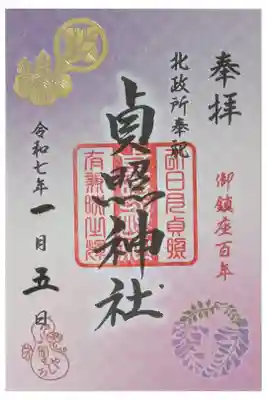 奉拝
北政所奉祀
御鎮座百年
貞照神社
令和七年
一月五日